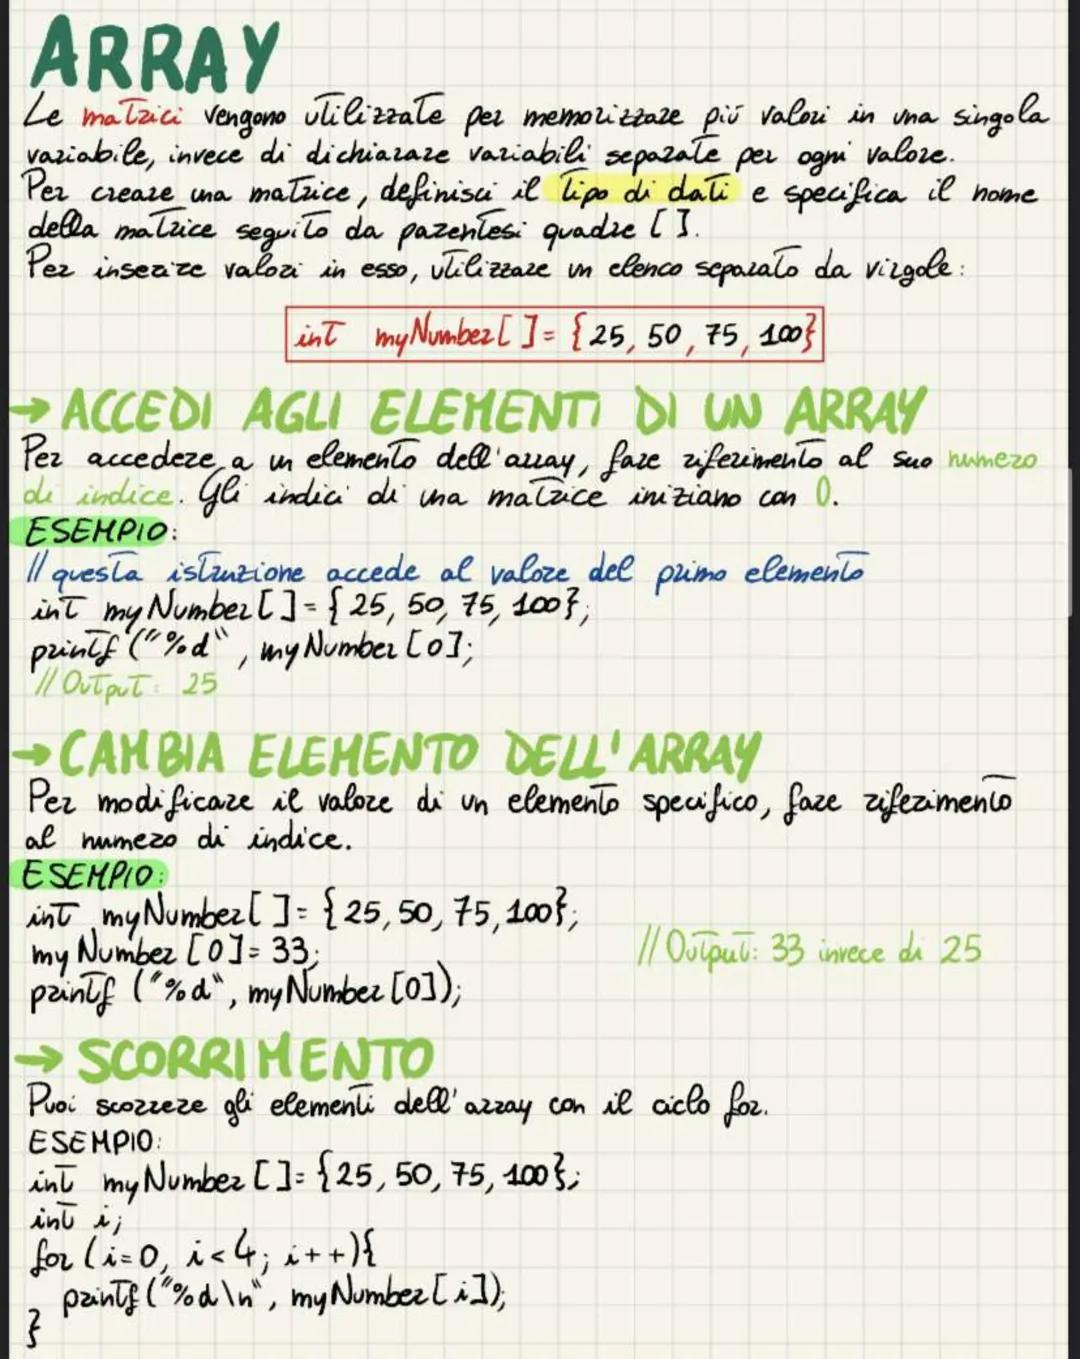 ARRAY
Le matrici vengono utilizzate per memorizzare più valori in una singola
variabile, invece di dichiarare variabili separate per ogni valore.
Per creare una matrice, definisci il tipo di dati e specifica il nome
della matrice seguito da parentesi quadre [ ].
Per inserire valori in esso, utilizzare un elenco separato da virgole:
int myNumber[ ]= {25, 50, 75, 100}
→ ACCEDI AGLI ELEMENTI DI UN ARRAY
Per accedere a un elemento dell'array, fare riferimento al suo numero
di indice. Gli indici di una matrice iniziano con 0.
ESEMPIO:
// questa istruzione accede al valore del primo elemento
int myNumber[ ]= { 25, 50, 75, 100};
printf ("%d", myNumber [0];
// Output: 25
→ CAMBIA ELEMENTO DELL'ARRAY
Per modificare il valore di un elemento specifico, fare riferimento
al numero di indice.
ESEMPIO:
int myNumber[ ]= {25, 50, 75, 100};
myNumber [0]= 33;
// Output: 33 invece di 25
printf ("%d", myNumber [0]);
→ SCORRIMENTO
Puoi scorrere gli elementi dell'array con il ciclo for.
ESEMPIO:
int myNumber []= {25, 50, 75, 100};
int i;
for (i=0, i<4; i++){
printf ("%d\n", myNumber [i]);
}